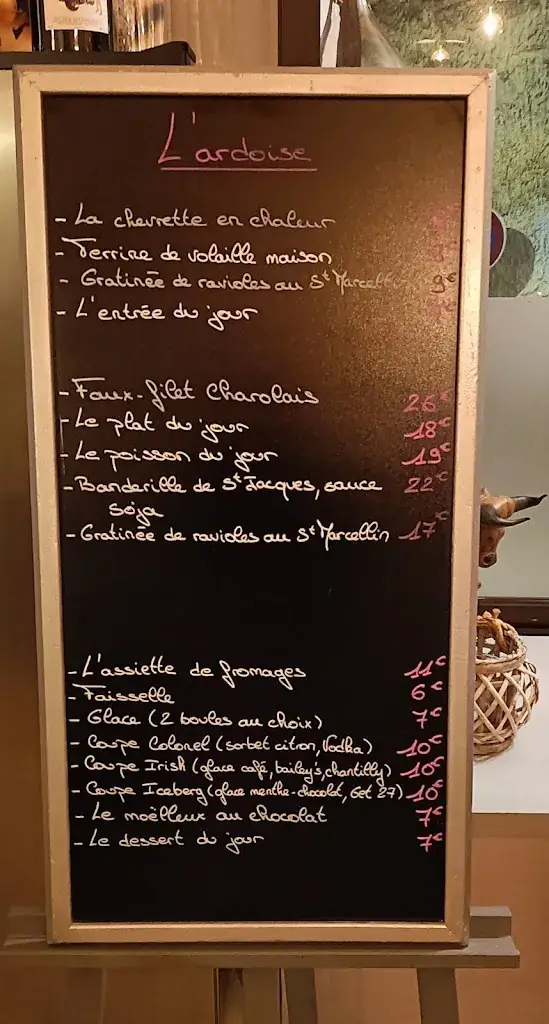 L'ardoise
- La chevrette en chaleur
- Terrine de volaille maison
- Gratinée de ravioles au St Marcellin 9€
- L'entrée du jour
- Faux-filet Charolais 26€
- Le plat du jour 18€
- Le poisson du jour 19€
- Banderille de St Jacques, sauce 22€
soja
- Gratinée de ravioles au St Marcellin 17€
- L'assiette de fromages 11€
- Faisselle 6€
- Glace (2 boules au choix) 7€
- Coupe Colonel (sorbet citron, Vodka) 10€
- Coupe Irish (glace café, bailey's, chantilly) 10€
- Coupe Iceberg (glace menthe-chocolat, Get 27) 10€
- Le moëlleux au chocolat 7€
- Le dessert du jour 7€